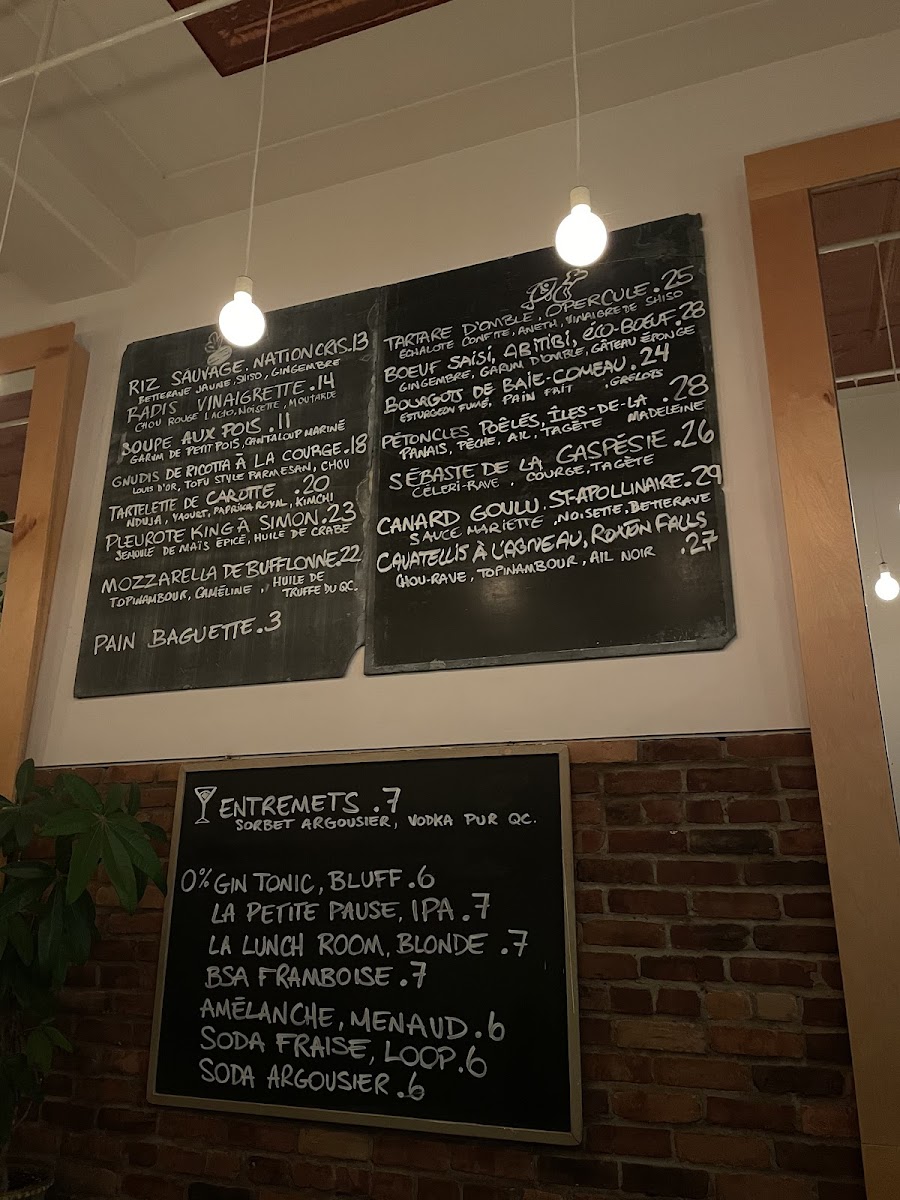 RIZ SAUVAGE. NATION CRIS.13
BETTERAVE JAUNE, SHISO, GINGEMBRE
RADIS VINAIGRETTE .14
CHOU ROUGE LACTO, NOISETTE, MOUTARDE
SOUPE AUX POIS .11
GARUM DE PETIT POIS, CANTALOUP MARINÉ
GNUDIS DE RICOTTA À LA COURGE.18
LOUIS D'OR, TOFU STYLE PARMESAN, CHOU
TARTELETTE DE CAROTTE .20
NDUJA, YAOURT, PAPRIKA ROYAL, KIMCHI
PLEUROTE KING À SIMON.23
SEMOULE DE MAÏS ÉPICÉ, HUILE DE CRABE
MOZZARELLA DE BUFFLONNE.22
TOPINAMBOUR, CAMÉLINE, HUILE DE
TRUFFE DU QC.
PAIN BAGUETTE.3
TARTARE D'OMBLE. OPERCULE.25
ÉCHALOTE CONFITE, ANETH, VINAIGRE DE SHISO
BOEUF SAISI, ABITIBI, ÉCO-BOEUF.28
GINGEMBRE, GARUM D'OMBLE, GÂTEAU ÉPONGE
BOURGOTS DE BAIE-COMEAU .24
ESTURGEON FUMÉ, PAIN FRIT , GRELOTS
PÉTONCLES POÊLÉS, ÎLES-DE-LA .28
PANAIS, PÊCHE, AIL, TAGÈTE MADELEINE
SÉBASTE DE LA GASPÉSIE .26
CÉLERI-RAVE , COURGE, TAGÈTE
CANARD GOULU. ST-APOLLINAIRE.29
SAUCE MARIETTE , NOISETTE, BETTERAVE
CAVATELLIS À L'AGNEAU, ROXTON FALLS
CHOU-RAVE, TOPINAMBOUR, AIL NOIR .27
ENTREMETS .7
SORBET ARGOUSIER, VODKA PUR QC.
0% GIN TONIC, BLUFF .6
LA PETITE PAUSE, IPA .7
LA LUNCH ROOM, BLONDE .7
BSA FRAMBOISE .7
AMÉLANCHE, MENAUD .6
SODA FRAISE, LOOP.6
SODA ARGOUSIER .6